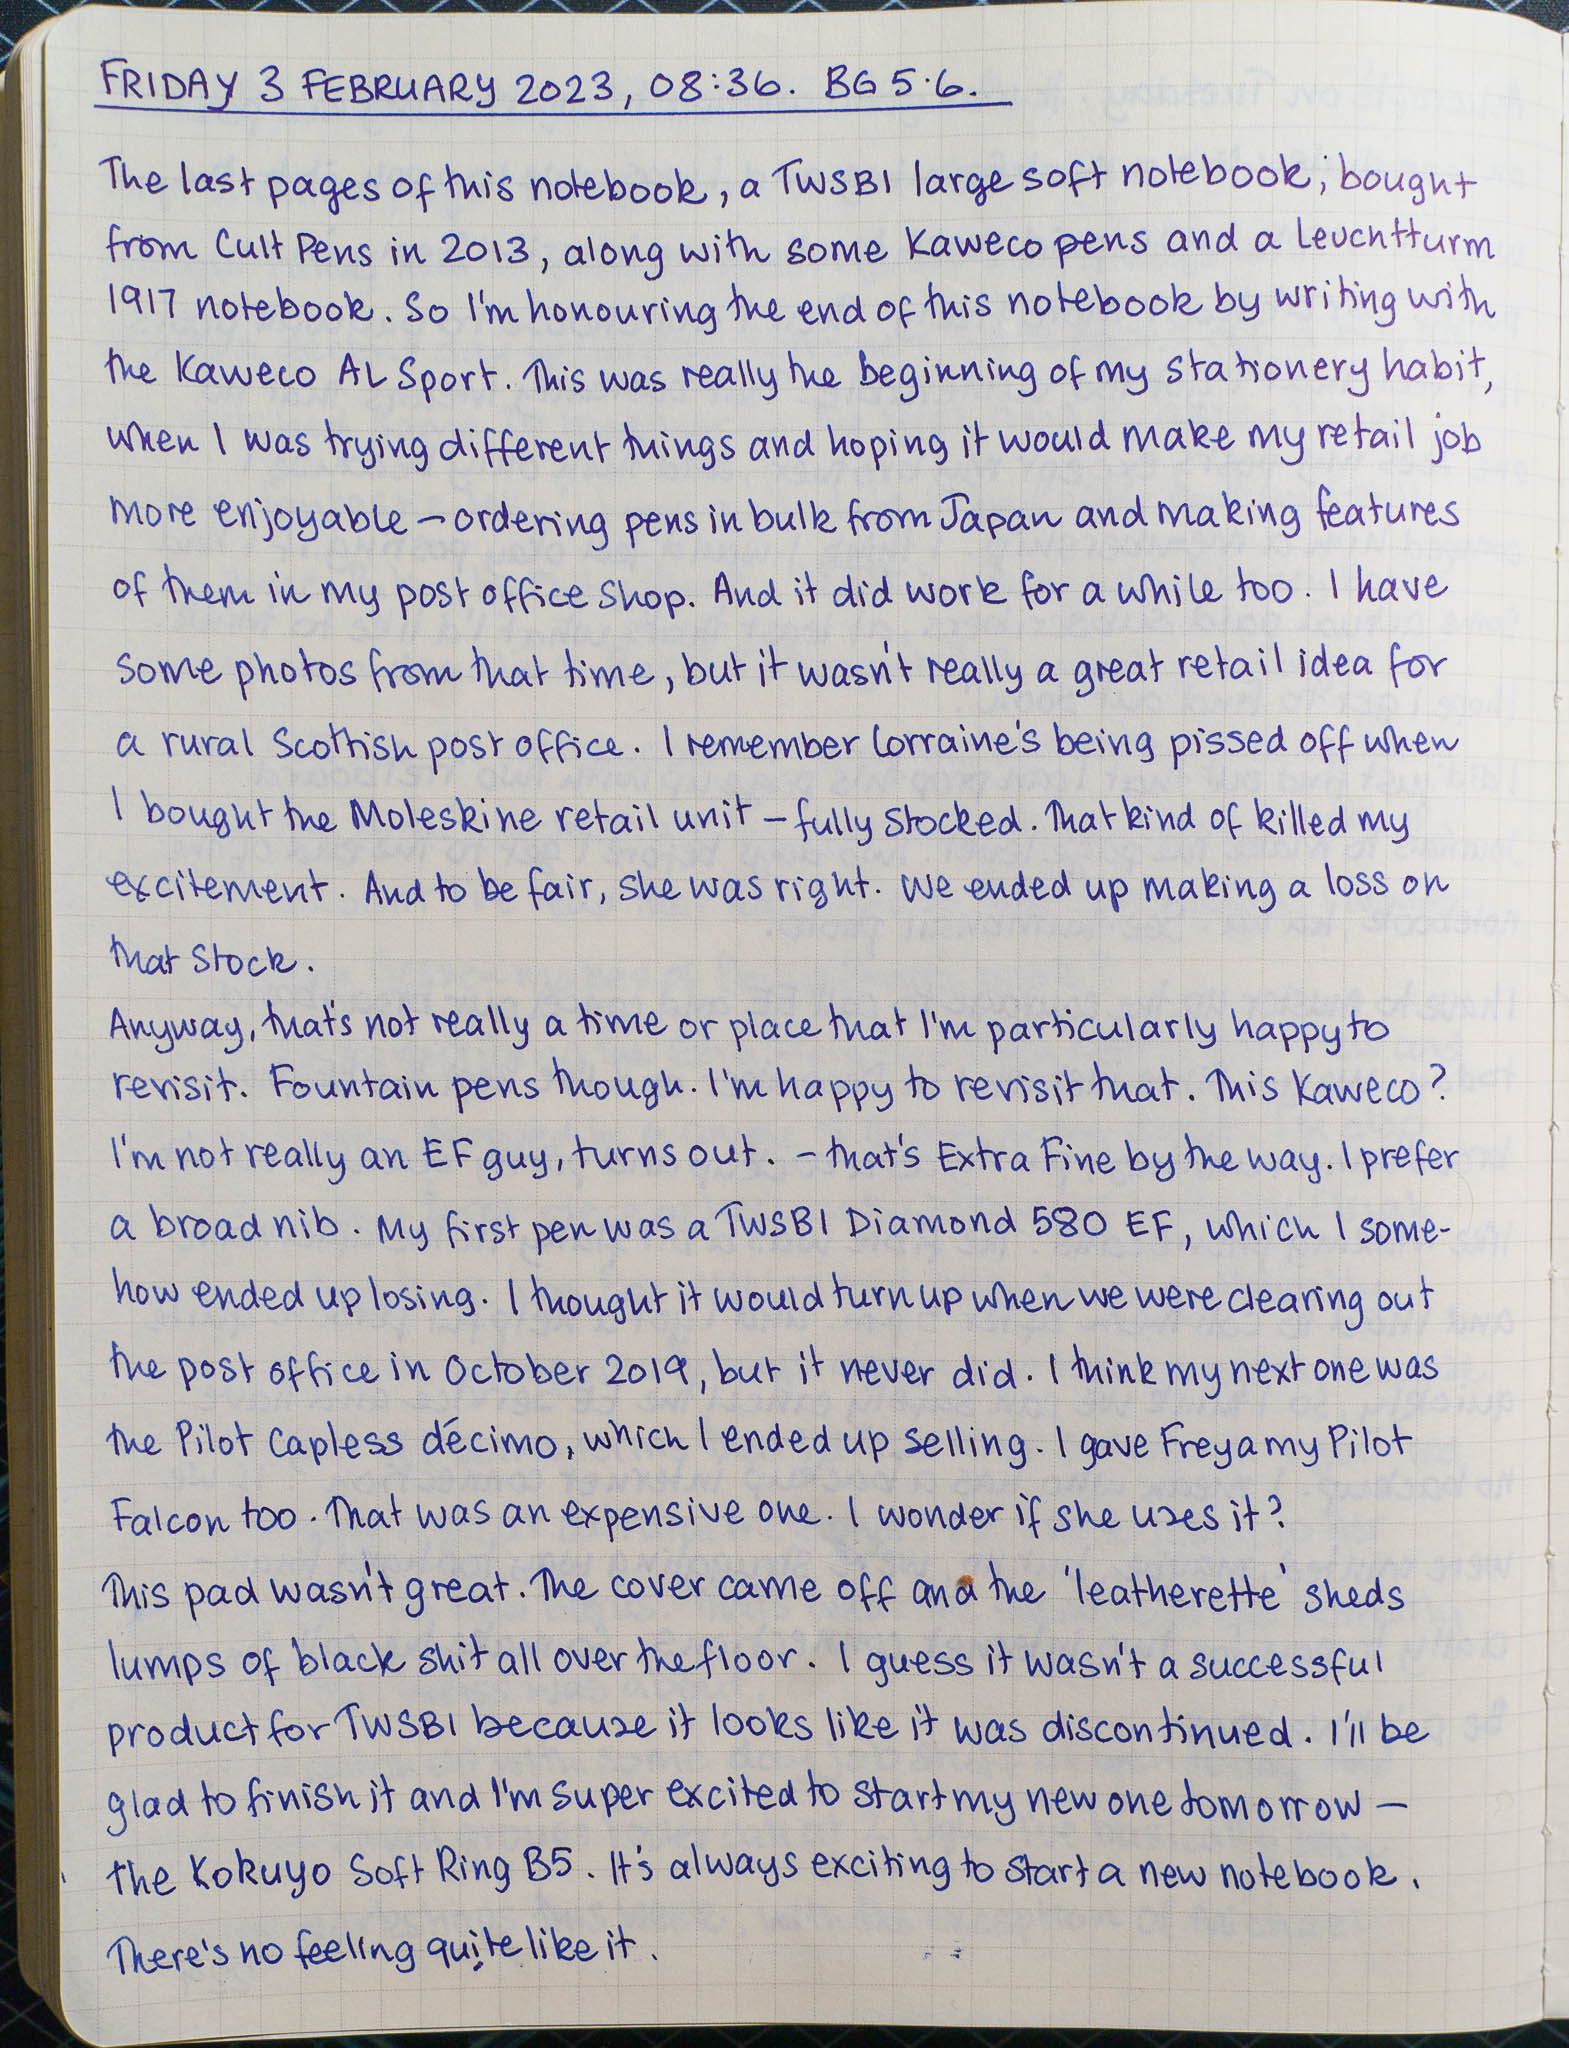 FRIDAY 3 FEBRUARY 2023, 08:36. BG 5.6.
The last pages of this notebook, a TWSBI large soft notebook, bought
from Cult Pens in 2013, along with some Kaweco pens and a Leuchtturm
1917 notebook. So I'm honouring the end of this notebook by writing with
the Kaweco AL Sport. This was really the beginning of my stationery habit,
when I was trying different things and hoping it would make my retail job
more enjoyable – ordering pens in bulk from Japan and making features
of them in my post office shop. And it did work for a while too. I have
some photos from that time, but it wasn't really a great retail idea for
a rural Scottish post office. I remember Lorraine's being pissed off when
I bought the Moleskine retail unit – fully stocked. That kind of killed my
excitement. And to be fair, she was right. We ended up making a loss on
that stock.
Anyway, that's not really a time or place that I'm particularly happy to
revisit. Fountain pens though. I'm happy to revisit that. This Kaweco?
I'm not really an EF guy, turns out. – that's Extra Fine by the way. I prefer
a broad nib. My first pen was a TWSBI Diamond 580 EF, which I some-
how ended up losing. I thought it would turn up when we were clearing out
the post office in October 2019, but it never did. I think my next one was
the Pilot Capless décimo, which I ended up selling. I gave Freya my Pilot
Falcon too. That was an expensive one. I wonder if she uses it?
This pad wasn't great. The cover came off and the 'leatherette' sheds
lumps of black shit all over the floor. I guess it wasn't a successful
product for TWSBI because it looks like it was discontinued. I'll be
glad to finish it and I'm super excited to start my new one tomorrow –
the Kokuyo Soft Ring B5. It's always exciting to start a new notebook.
There's no feeling quite like it.